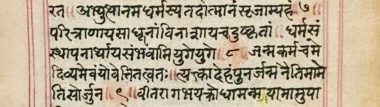 रत अभ्युत्थानमधर्मस्य तदात्मानं सृजाम्यहं ७
परित्राणाय साधूनां विनाशाय च दुष्कृतां धर्मसं
स्थापनार्थाय संभवामि युगे युगे ८ जन्म कर्म च मे
दिव्यमेवं यो वेत्ति तत्त्वतः त्यक्त्वा देहं पुनर्जन्म नैति मामे
ति सोर्जुन ९ वीतरागभयक्रोधा मन्मया मामुपा